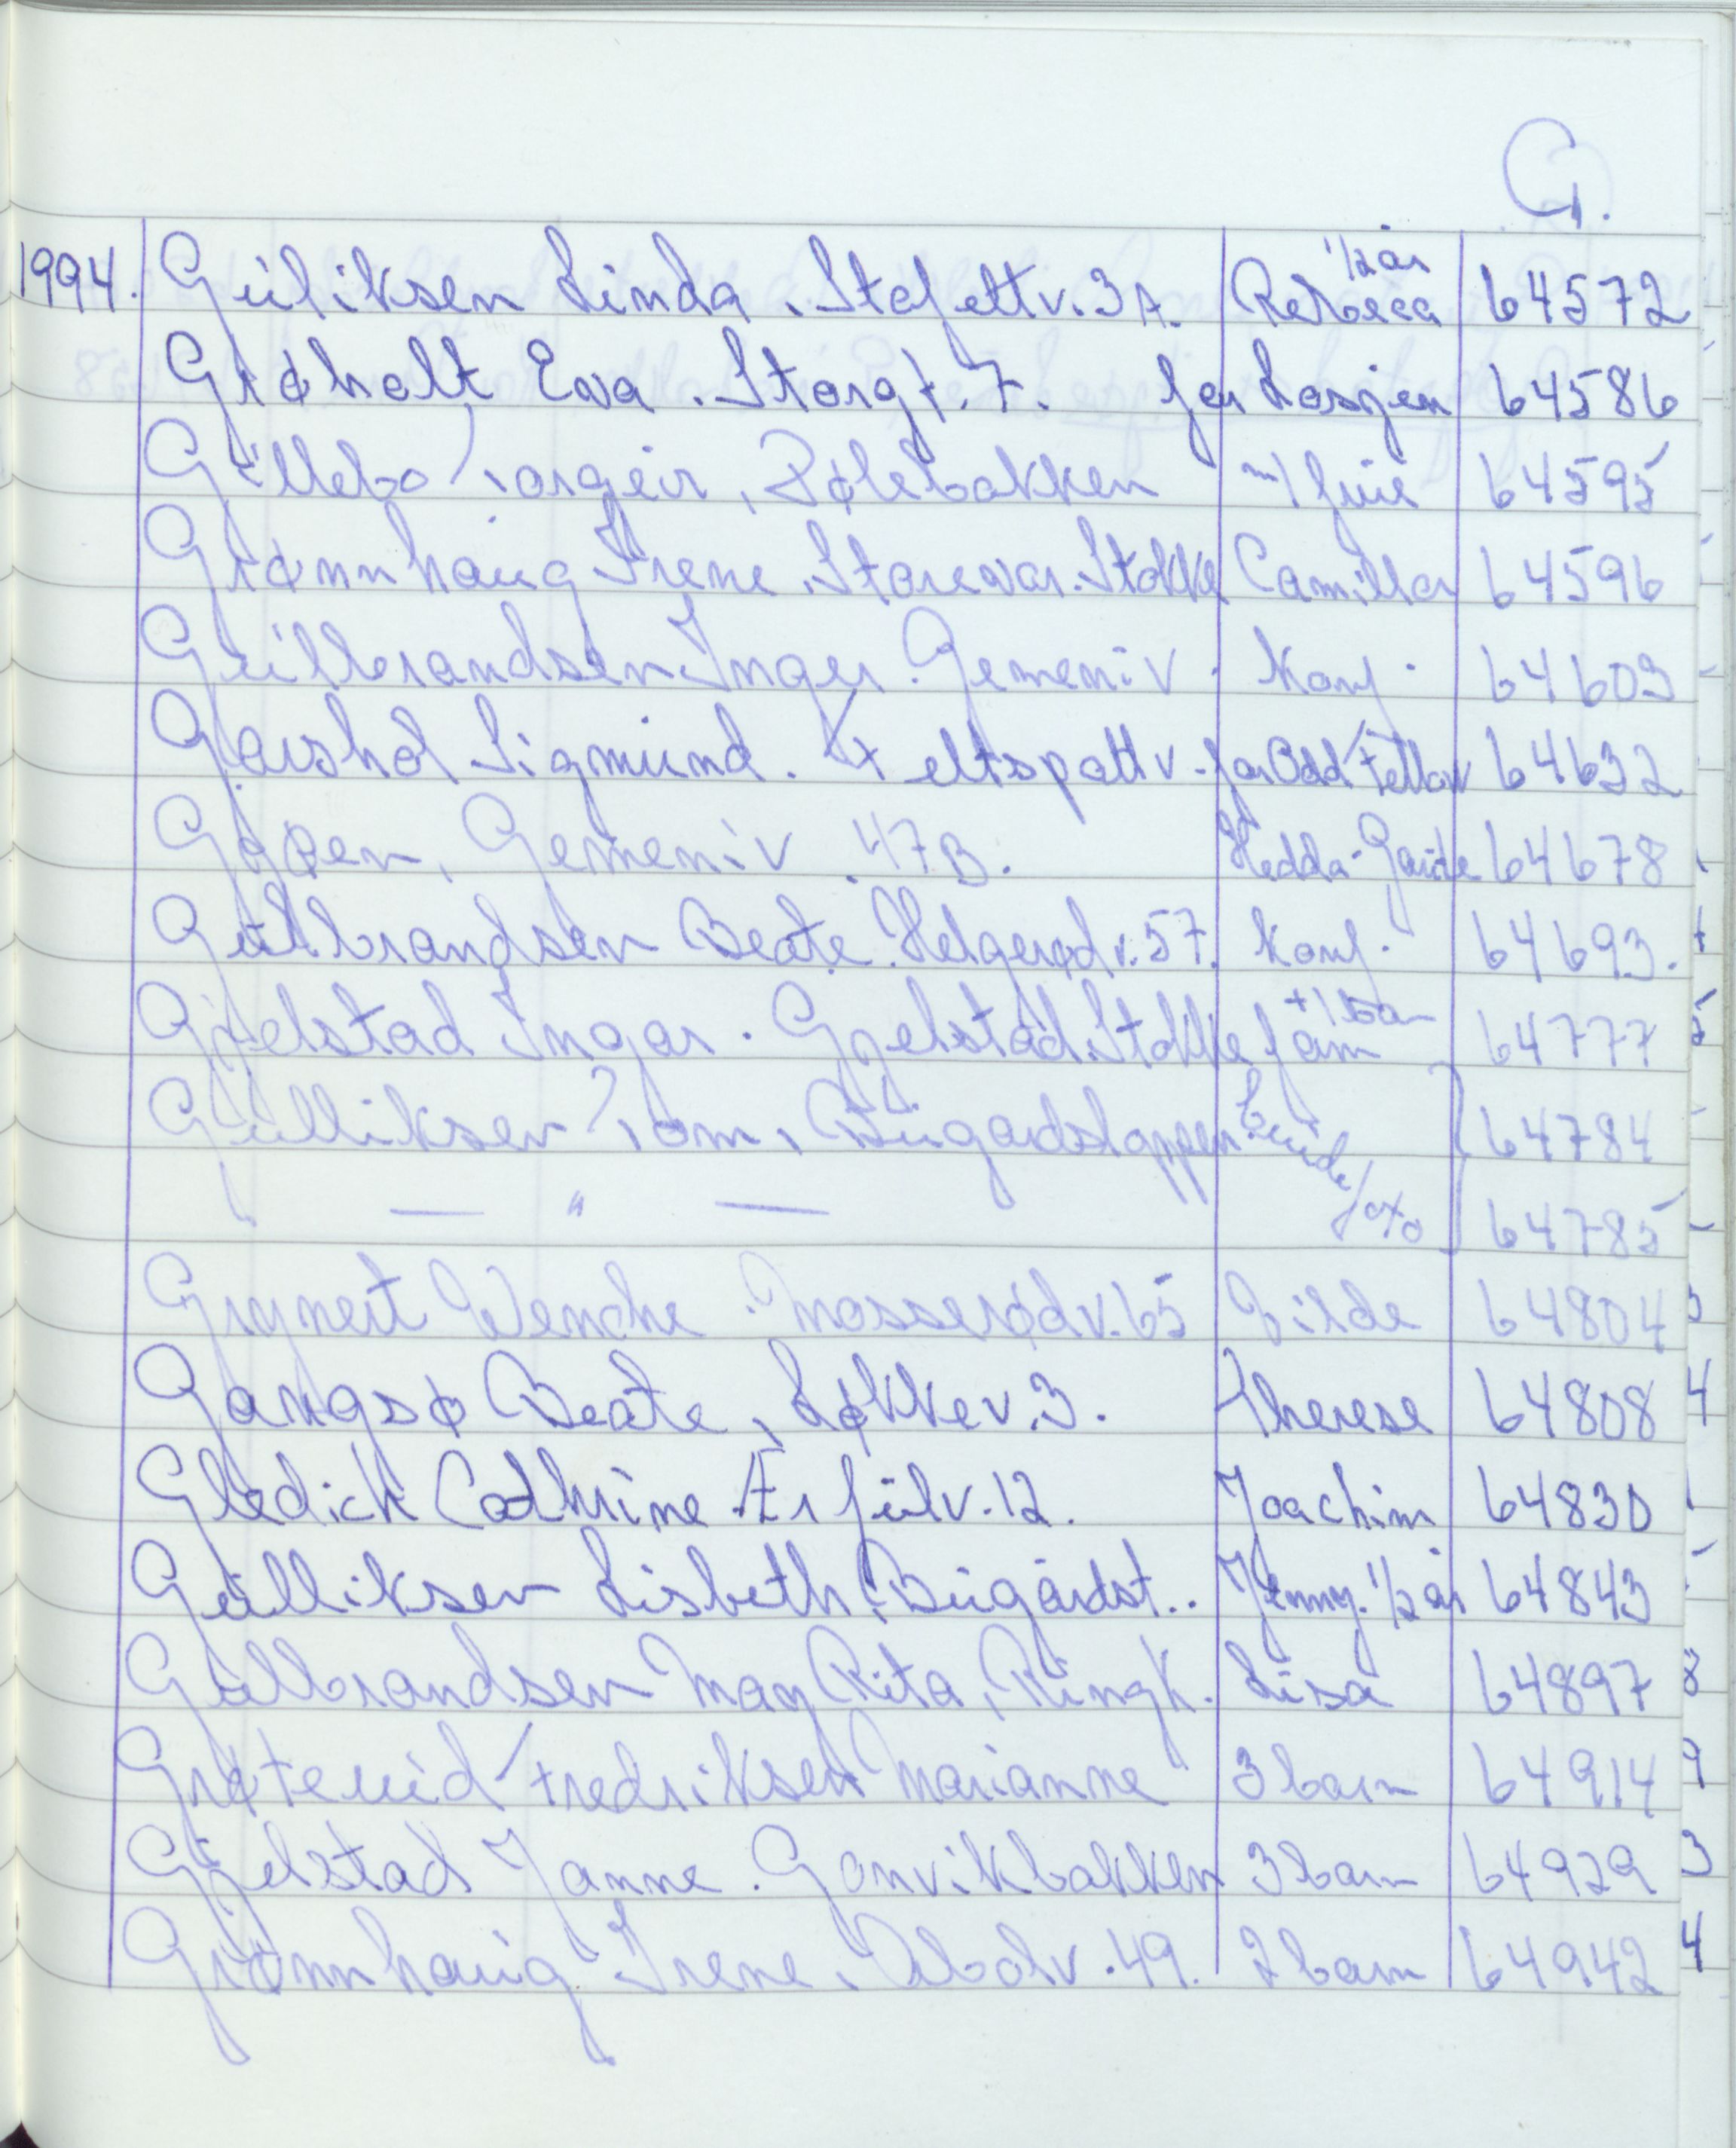 G.
1994. Guliksen Linda. Stafettv. 3A. Rebecca 1/2 år 64572
Grøholt Eva. Storgt. 7. for Losjen 64586
Gullebo Torgeir, Bølebakken m/ frue 64595
Grønnhaug Irene. Storevar. Stokke Camilla 64596
Gullbrandsen Inger. Gemeniv. Konf. 64603
Garshol Sigmund. Feltspattv. for Odd Fellow 64632
Gemeniv. 47B. Hedda-Gaute 64678
Gulbrandsen Beate. Helgerødv. 57. Konf. 64693.
Gjelstad Ingar. Gjelstad. Stokke fam + barn 64777
Gulliksen Tom, Bugårdsløppen. 64784
— " — 64785
Grynert Wenche. Mosserødv. 65 64804
Gangsø Beate, Løkkev. 3. Therese 64808
Gledich Cathrine. Ærfulv. 12. Joachim 64830
Gulliksen Lisbeth, Bugårdst.. Jenny. 1/2 år 64843
Gulbrandsen May Rita, Ringk. Lisa 64897
Grøtevid Fredriksen Marianne 3 barn 64914
Gjelstad Janne. Gonvikbakken 3 barn 64929
Grønnhaug Irene. 49. 2 barn 64942